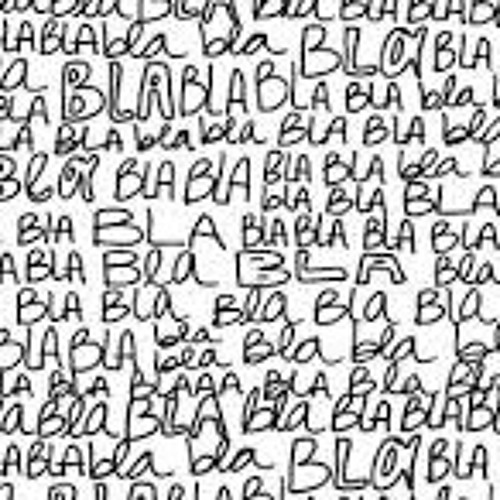 Bla BLA Bla BLA BLA
BLA BLA bla bla BLa BLA
a BLA BLA BLA BLA bla
BLA BLA bla bla BLA BLA bla
BLa BLA BLA BLA BLA bla
BLA BLA BLA
BLA BLA BLA BLA BLA BLA
BLA Bla BLA Bla
BLA Bla Bla Bla Bla
BLA BLA bla Bla bla
bla
BLA Bla BLAAA BLA Bla Bla
a Bla BLA bla BLA BLA
BLA bla bla BLa BLA